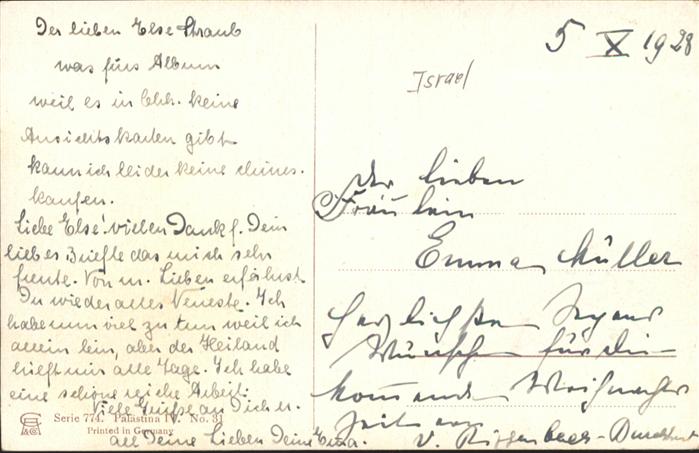 Der lieben Else Straub
was fürs Album
weil es in Chh. keine
Ansichtskarten gibt
kann ich leider keine chines.
kaufen.
Liebe Else! vielen Dank f. Dein
liebes Briefle das mich sehr
freute. Von m. Lieben erfährst
Du wieder alles Neueste. Ich
habe nun viel zu tun weil ich
allein bin, aber der Heiland
hilft mir alle Tage. Ich habe
eine schöne reiche Arbeit.
Viele Grüße an Dich u.
all deine Lieben Deine Emma.
Serie 774. Palästina IV. No. 31
Printed in Germany
5 X 1928
Israel
Der lieben
Fräulein
Emma Müller
Herzlichsten Segens
Wünsche für die
kommende Weihnachts
Zeit von
v.